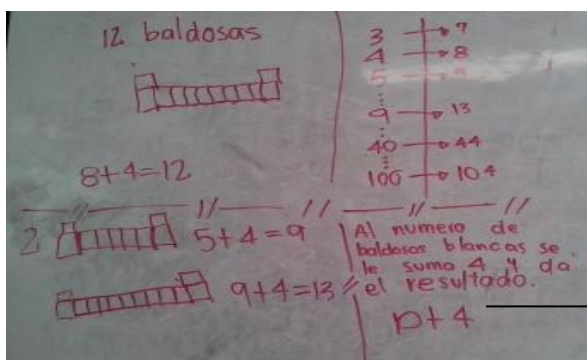 12 baldosas
8+4=12
3 → 7
4 → 8
5 → 9
9 → 13
40 → 44
100 → 104
2
5+4=9
9+4=13
Al numero de
baldosas blancas se
le suma 4 y da
el resultado.
n+4